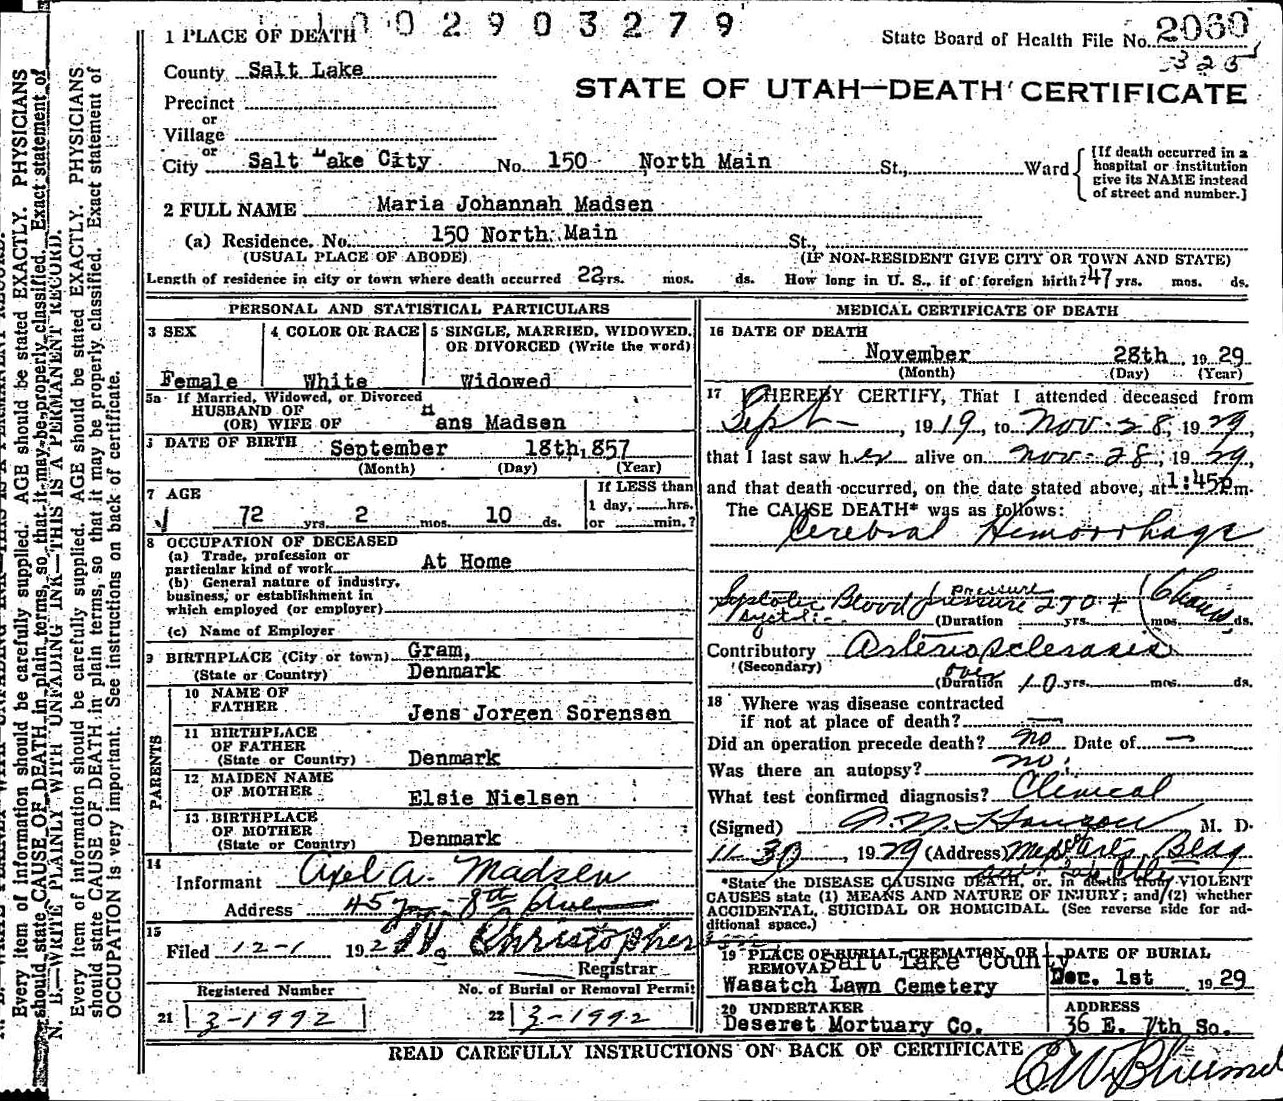 1002903279
1 PLACE OF DEATH
State Board of Health File No. 2060
325
County Salt Lake
STATE OF UTAH—DEATH CERTIFICATE
Precinct
or
Village
or
City Salt Lake City No. 150 North Main St., Ward
[If death occurred in a hospital or institution give its NAME instead of street and number.]
2 FULL NAME Maria Johannah Madsen
(a) Residence. No. 150 North Main St.,
(USUAL PLACE OF ABODE) (IF NON-RESIDENT GIVE CITY OR TOWN AND STATE)
Length of residence in city or town where death occurred 22 yrs. mos. ds. How long in U. S., if of foreign birth? 47 yrs. mos. ds.
PERSONAL AND STATISTICAL PARTICULARS
3 SEX
Female
4 COLOR OR RACE
White
5 SINGLE, MARRIED, WIDOWED, OR DIVORCED (Write the word)
Widowed
5a If Married, Widowed, or Divorced
HUSBAND OF
(OR) WIFE OF Hans Madsen
DATE OF BIRTH September 18th, 857
(Month) (Day) (Year)
7 AGE
72 yrs. 2 mos. 10 ds.
If LESS than
1 day, hrs.
or min.?
8 OCCUPATION OF DECEASED
(a) Trade, profession or
particular kind of work At Home
(b) General nature of industry,
business, or establishment in
which employed (or employer)
(c) Name of Employer
9 BIRTHPLACE (City or town) Gram,
(State or Country) Denmark
PARENTS
10 NAME OF
FATHER Jens Jorgen Sorensen
11 BIRTHPLACE
OF FATHER
(State or Country) Denmark
12 MAIDEN NAME
OF MOTHER Elsie Nielsen
13 BIRTHPLACE
OF MOTHER
(State or Country) Denmark
14
Informant Axel A. Madsen
Address 457 8th Ave
15
Filed 12-1 192
Christopherson
Registrar
Registered Number
21 3-1992
No. of Burial or Removal Permit
22 3-1992
MEDICAL CERTIFICATE OF DEATH
16 DATE OF DEATH
November 28th 1929
(Month) (Day) (Year)
17 I HEREBY CERTIFY, That I attended deceased from
Sept — , 1919, to Nov-28, 1929,
that I last saw her alive on Nov-28, 1929,
and that death occurred, on the date stated above, at 1:45 p.m.
The CAUSE DEATH* was as follows:
Cerebral Hemorrhage
pressure
Blood pressure 270 + 6 hours
(Duration yrs. mos. ds.
Contributory Arteriosclerosis
(Secondary)
over
(Duration 10 yrs. mos. ds.
18 Where was disease contracted
if not at place of death? —
Did an operation precede death? no Date of —
Was there an autopsy? no
What test confirmed diagnosis? Clinical
(Signed) M. D.
11-30, 1929 (Address) Bldg
*State the DISEASE CAUSING DEATH, or, in deaths from VIOLENT
CAUSES state (1) MEANS AND NATURE OF INJURY; and (2) whether
ACCIDENTAL, SUICIDAL OR HOMICIDAL. (See reverse side for ad-
ditional space.)
19 PLACE OF BURIAL, CREMATION, OR
REMOVAL Salt Lake County
Wasatch Lawn Cemetery
DATE OF BURIAL
Dec. 1st 1929
20 UNDERTAKER
Deseret Mortuary Co.
ADDRESS
36 E. 7th So.
READ CAREFULLY INSTRUCTIONS ON BACK OF CERTIFICATE
Every item of information should be carefully supplied. AGE should be stated EXACTLY. PHYSICIANS
should state CAUSE OF DEATH in plain terms, so that it may be properly classified. Exact statement of
N. B.—WRITE PLAINLY WITH UNFADING INK—THIS IS A PERMANENT RECORD.
Every item of information should be carefully supplied. AGE should be stated EXACTLY. PHYSICIANS
should state CAUSE OF DEATH in plain terms, so that it may be properly classified. Exact statement of
OCCUPATION is very important. See instructions on back of certificate.